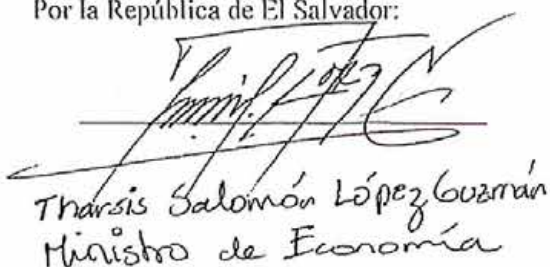 Por la República de El Salvador:
Tharsis Salomón López Guzmán
Ministro de Economía